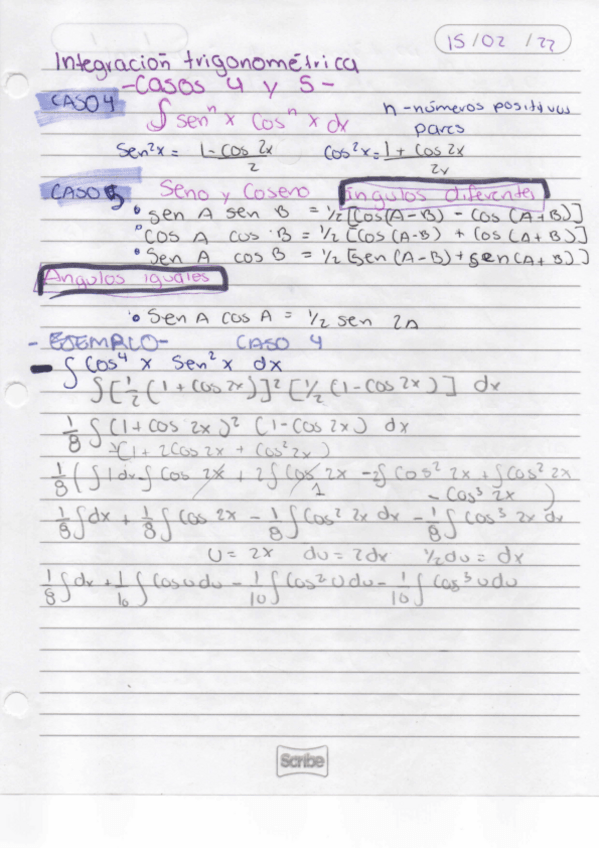 15/02/22
Integración trigonométrica
-Casos 4 y 5-
CASO 4 ∫ senⁿ x cosⁿ x dx n-números positivos
pares
Sen²x = 1-cos 2x / 2 cos²x = 1+cos 2x / 2x
CASO 5 Seno y Coseno ángulos diferentes
• sen A sen B = 1/2 [cos(A-B) - cos (A+B)]
• cos A cos B = 1/2 [cos(A-B) + cos (A+B)]
• Sen A cos B = 1/2 [sen(A-B) + sen(A+B)]
Angulos iguales
• Sen A cos A = 1/2 sen 2A
- EJEMPLO- CASO 4
- ∫ cos⁴ x sen² x dx
∫ [1/2 (1+cos 2x)]² [1/2 (1-cos 2x)] dx
1/8 ∫ (1+cos 2x)² (1-cos 2x) dx
(1+2cos2x + cos²2x)
1/8 (∫1dx-∫cos 2x + 2∫cos 2x -2∫cos² 2x + ∫cos² 2x
1 - cos³ 2x )
1/8∫dx + 1/8∫cos 2x - 1/8∫cos² 2x dx - 1/8∫cos³ 2x dx
U = 2x du = 2dx 1/2du = dx
1/8∫dx + 1/10∫cosu du - 1/10∫cos² u du - 1/10∫cos³ u du
Scribe